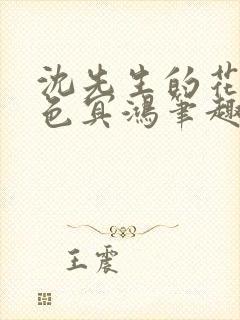 沈先生的花
色冥鸿笔趣
王震